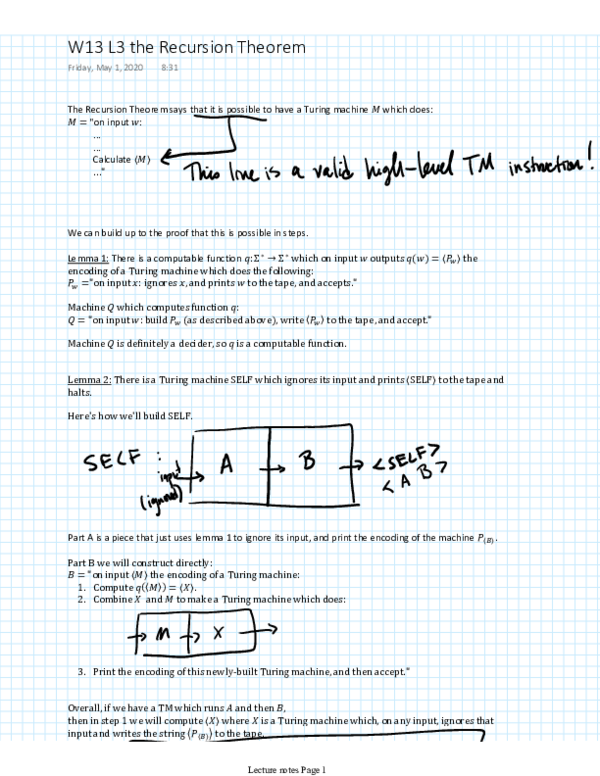 W13 L3 the Recursion Theorem
Friday, May 1, 2020 8:31
The Recursion Theorem says that it is possible to have a Turing machine M which does:
M = "on input w:
...
...
Calculate ⟨M⟩
..."
This line is a valid high-level TM instruction!
We can build up to the proof that this is possible in steps.
Lemma 1: There is a computable function q: Σ* → Σ* which on input w outputs q(w) = ⟨P_w⟩ the
encoding of a Turing machine which does the following:
P_w = "on input x: ignores x, and prints w to the tape, and accepts."
Machine Q which computes function q:
Q = "on input w: build P_w (as described above), write ⟨P_w⟩ to the tape, and accept."
Machine Q is definitely a decider, so q is a computable function.
Lemma 2: There is a Turing machine SELF which ignores its input and prints ⟨SELF⟩ to the tape and
halts.
Here's how we'll build SELF.
SELF : input (ignored) A B <SELF>
<A B>
Part A is a piece that just uses lemma 1 to ignore its input, and print the encoding of the machine P_⟨B⟩.
Part B we will construct directly:
B = "on input ⟨M⟩ the encoding of a Turing machine:
1. Compute q(⟨M⟩) = ⟨X⟩.
2. Combine X and M to make a Turing machine which does:
M X
3. Print the encoding of this newly-built Turing machine, and then accept."
Overall, if we have a TM which runs A and then B,
then in step 1 we will compute ⟨X⟩ where X is a Turing machine which, on any input, ignores that
input and writes the string ⟨P_⟨B⟩⟩ to the tape.
Lecture notes Page 1